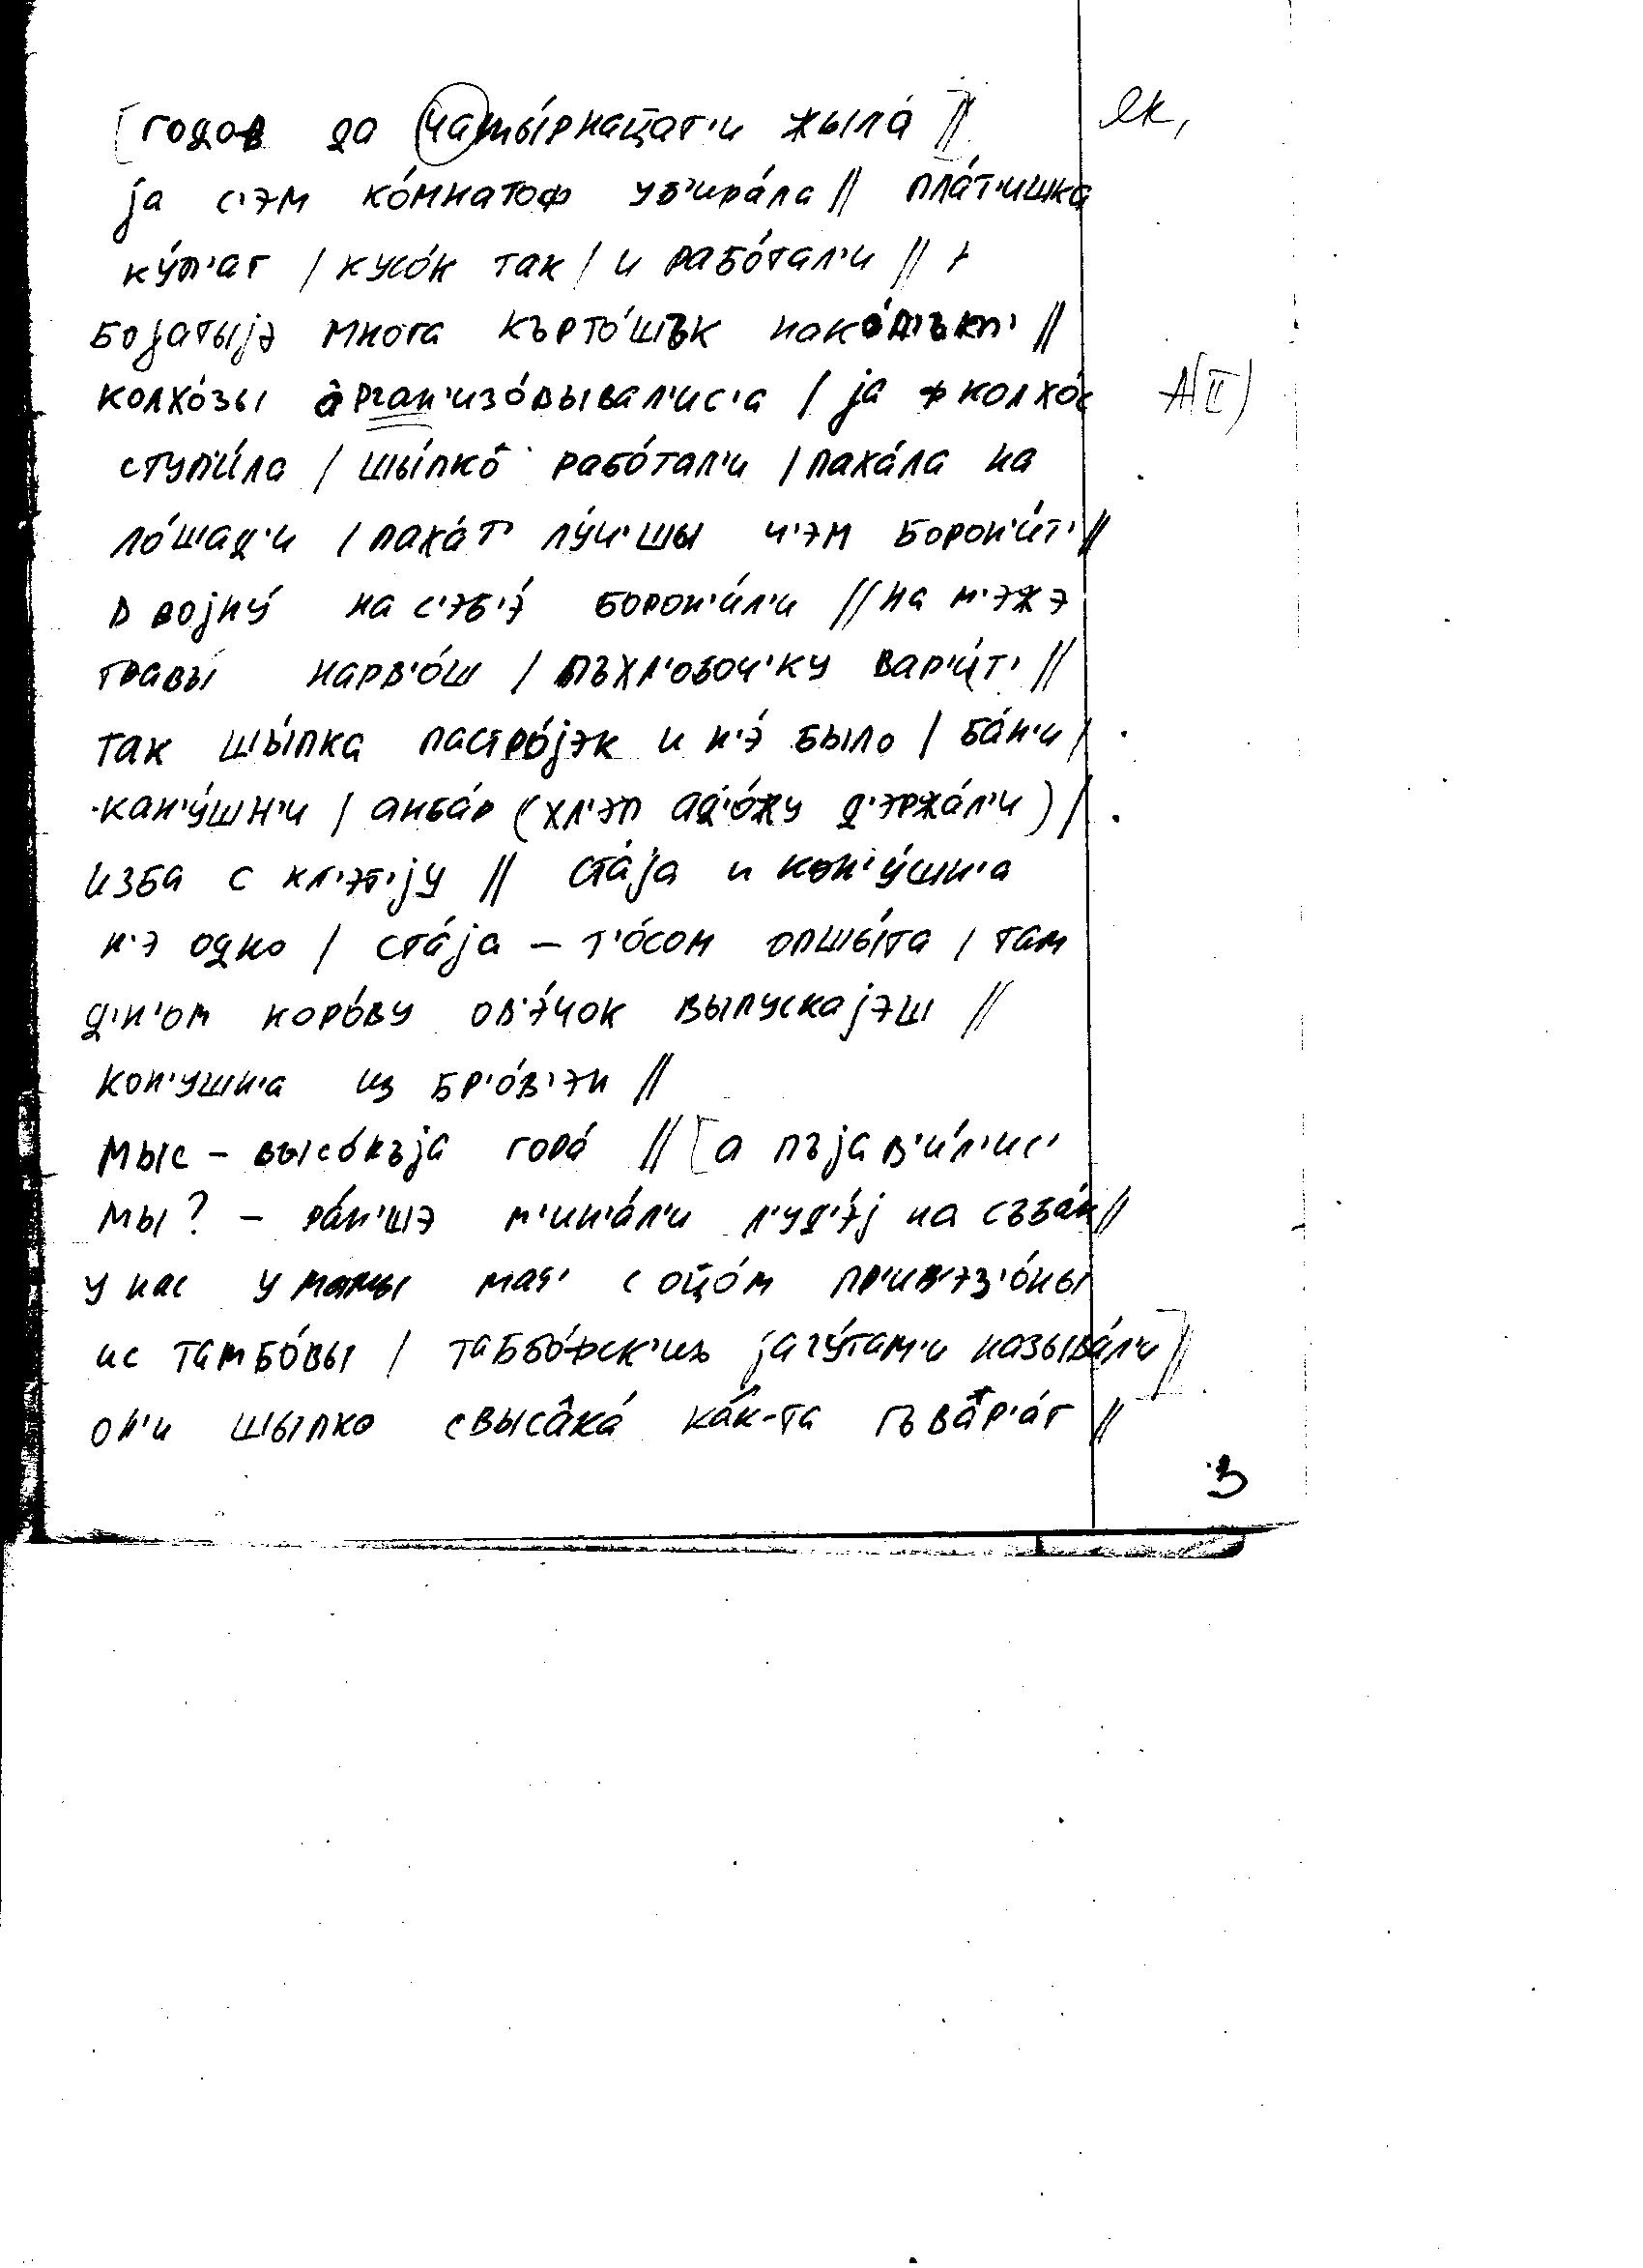 [годов да чаты́рнац̄ат'и жыла́ //]   як,
ја с'эм ко́мнатоф уб'ира́ла // пла́т'ишка
ку́п'ат / кусо́к так / и рабо́тал'и //
богатыјэ многа кърто́шък
колхо́зы арган'изо́вывал'ис'а / ја ф колхо́с   А(II)
ступ'и́ла / шы́пко рабо́тал'и / паха́ла на
ло́шад'и / паха́т' лу́ч'шы ч'эм борон'и́т' //
в војну́ на с'эб'э́ борон'и́л'и // на м'эжэ
травы́ нарв'о́ш / пъхл'о́воч'ку вар'и́т' //
так шы́пка пастро́јэк и н'э́ было / ба́н'и /
кан'у́шн'и / анба́р (хл'эп ад'о́жу д'эржа́л'и) /
изба с кл'эт'ју // ста́ја и кон'у́шн'а
н'э одно / ста́ја – т'о́сом опшы́та / там
д'н'ом коро́ву ов'э́чок выпускајэш //
кон'ушн'а из бр'о́в'эн //
мыс – высо́къја гора́ // [а пъјав'и́л'ис'
мы? – ра́н'шэ м'ин'а́л'и л'уд'э́ј на съба́к //
у нас у мамы мат' с оц̄о́м пр'ив'эз'о́ны
ис тамбо́вы / таббо́фск'иъ јагу́там'и называ́л'и //]
он'и шыпко свысака́ ка́к-та гъвар'а́т //
3